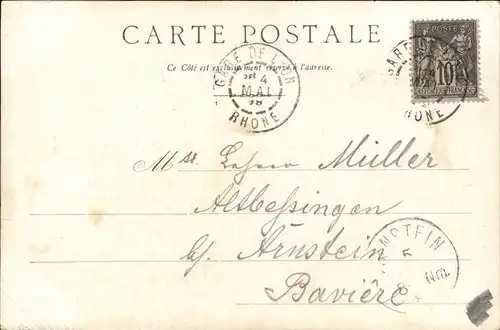 CARTE POSTALE
Ce Côté est exclusivement réservé à l'adresse.
GARE DE LYON
4
MAI
98
RHONE
POSTES
10
GARE
RHONE
Müller
Altbessingen
b/. Arnstein
Bavière
ARNSTEIN